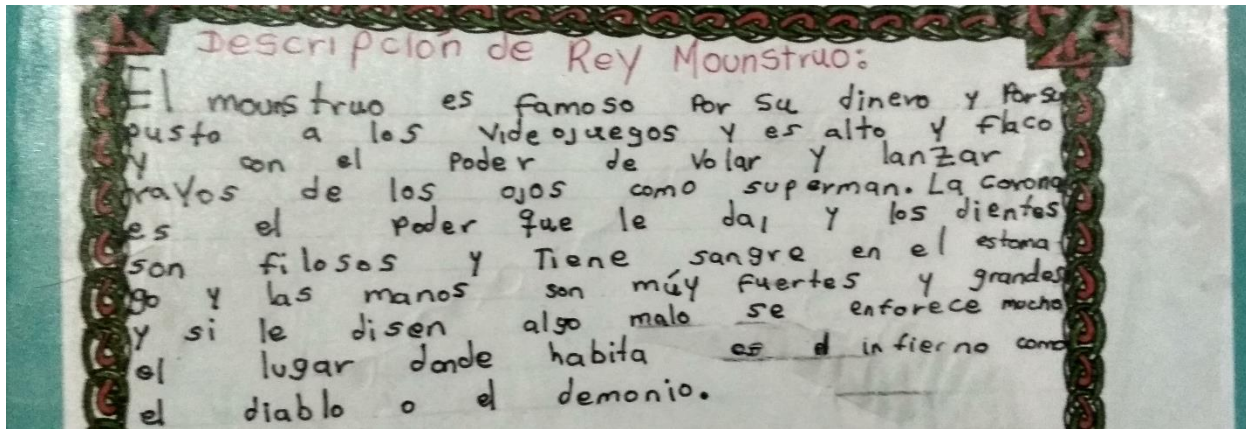 Descripción de Rey Mounstruo:
El mounstruo es famoso por su dinero y por su
pusto a los videojuegos y es alto y flaco
y con el poder de volar y lanzar
rayos de los ojos como superman. La corona
es el poder que le da, y los dientes
son filosos y Tiene sangre en el estoma
go y las manos son múy fuertes y grandes
y si le disen algo malo se enforece mocho
el lugar donde habita es el infierno como
el diablo o el demonio.